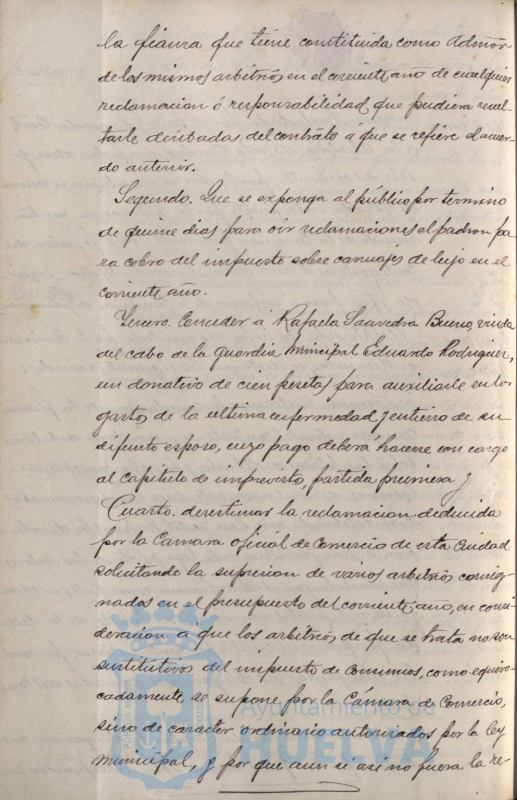 la fianza que tiene constituida como Admor
de los mismos arbitrios en el corriente año de cualquier
reclamacion ó responsabilidad que pudiera resul-
tarle deribadas del contrato á que se refiere el acuer-
do anterior.
Segundo. Que se exponga al público por termino
de quince dias para oir reclamaciones el padron pa
ra cobro del impuesto sobre carruajes de lujo en el
corriente año.
Tercero. Conceder á Rafaela Saavedra Bueno, viuda
del cabo de la guardia municipal Eduardo Rodriguez,
un donativo de cien pesetas para auxiliarle en los
gastos de la ultima enfermedad y entierro de su
difunto esposo, cuyo pago deberá hacerse con cargo
al capitulo de imprevisto, partida primera y
Cuarto. desestimar la reclamacion deducida
por la Camara oficial de Comercio de esta Ciudad
solicitando la supresion de varios arbitrios consig-
nados en el presupuesto del corriente año, en consi
deracion a que los arbitrios de que se trata no son
sustitutivos del impuesto de Consumos, como equivo-
cadamente se supone por la Cámara de Comercio,
sino de caracter ordinario autorizados por la ley
municipal, y por que aun se asi no fuera la re-
Ayuntamiento de
HUELVA